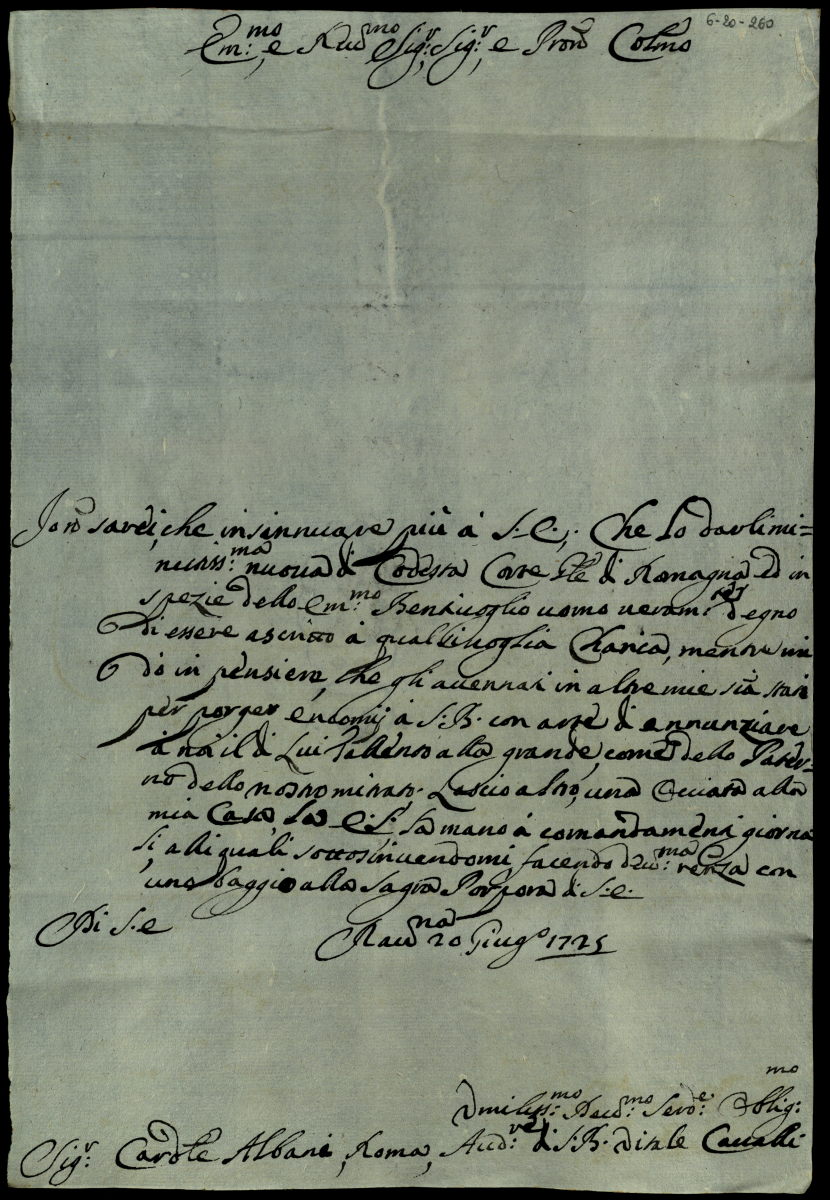 6-20-260
Em:mo, e Reu:mo Sig:r, Sig:r, e Pron Colmo
Io nō sarei, che insinnuare più à S: e:, che lo dar l'imi=
nuova di Codesta Corte di Romagna ed in
spezie dello em:mo Bentivoglio uomo veram:te degno
di essere ascritto à qualsivoglia Charica, mentre vi
dò in pensiere, che gli accennati in altre mie siā stati
per porger encomij à S: B: con arte di annunziare
à noi il di Lui talento alla grande, come dello Pater=
no dello nostro mirato. Lascio altro, una occiata alla
mia Casa, la mano à comandamenti giorna
li, alli quali sottoscrivendomi, facendo reu:ma renza con
uno baggio alla Sagra Porpora di S: e:
Di S: e
Rau:na 20 Giug:o 1725
Umiliss:mo Deuo:mo Serv:e Oblig:mo
Sig:r Card:le Albani, Roma, Aud:re di S: R: Vitale Cavalli